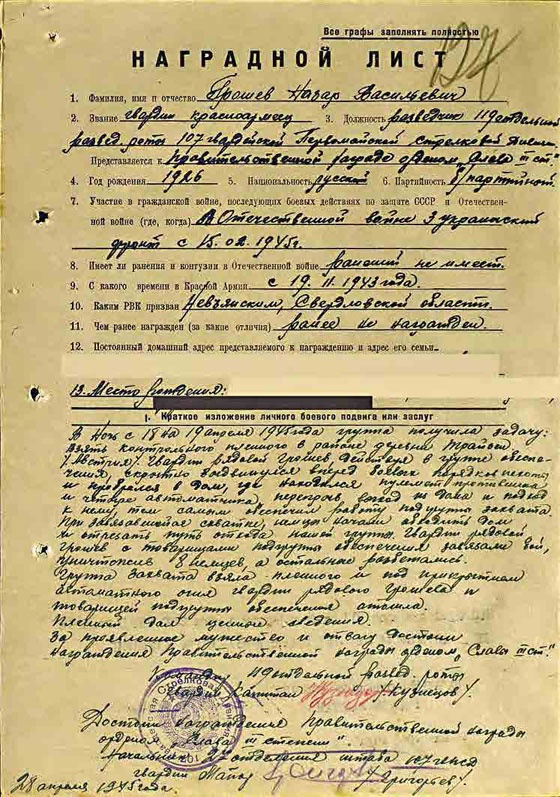 Все графы заполнять полностью
127
НАГРАДНОЙ ЛИСТ
1. Фамилия, имя и отчество Грошев Назар Васильевич
2. Звание гвардии красноармеец 3. Должность разведчик 119 отдельной
развед. роты 107 гвардейской Первомайской стрелковой дивизии
Представляется к правительственной награде орденом „Слава III ст."
4. Год рождения 1926 5. Национальность русский 6. Партийность б/партийный
7. Участие в гражданской войне, последующих боевых действиях по защите СССР и Отечествен-
ной войне (где, когда) В Отечественной войне 3 украинский
фронт с 15.02.1945г.
8. Имеет ли ранения и контузии в Отечественной войне ранений не имеет.
9. С какого времени в Красной Армии с 19.11.1943 года.
10. Каким РВК призван Невьянским, Свердловской области.
11. Чем ранее награжден (за какие отличия) ранее не награжден.
12. Постоянный домашний адрес представляемого к награждению и адрес его семьи
13. Место рождения:
I. Краткое изложение личного боевого подвига или заслуг
В ночь с 18 на 19 апреля 1945 года группа получила задачу:
Взять контрольного пленного в районе деревни
/Австрия/. Гвардии рядовой Грошев, действуя в группе обеспе-
чения, скрытно продвинулся вперед боевых порядков пехоты
и пробрался в дом, где находился пулемет противника
и четыре автоматчика, перекрыв выход из дома и подход
к нему, тем самым обеспечил работу подгруппы захвата.
При завязавшейся схватке, немцы начали обходить дом
и отрезать путь отхода нашей группы. Гвардии рядовой
Грошев с товарищами подгруппы обеспечения завязали бой,
уничтожив 8 немцев, а остальные разбежались.
Группа захвата взяла пленного и под прикрытием
автоматного огня гвардии рядового Грошева и
товарищей подгруппы обеспечения отошла.
Пленный дал ценные сведения.
За проявленное мужество и отвагу достоин
награждения правительственной награды орденом „Слава III ст."
Командир 119 отдельной развед. роты
гвардии капитан /Кузнецов/
Достоин награждения правительственной награды
орденом „Слава III степени"
Начальник 2 отделения штаба 107 гвсд
гвардии майор /Григорьев/.
28 апреля 1945 года.